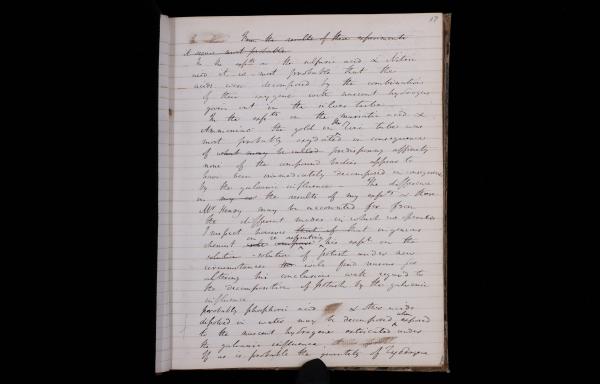 17
From the results of these experiments
it seems most probable
In the expts on the sulphuric acid & Nitric
acid it is most probable that the
acids were decomposed by the combination
of their oxygene with nascent hydrogene
given out in the silver tube.
In the expts on the muriatic acid &
Ammoniac the gold in the wire tube was
most probably oxydated in consequence
of what may be called predisposing affinity
none of the compound bodies appear to
have been immediately decomposed in consequence
by the galvanic influence – The difference
in the results of my expts & those
Mr Henry may be accounted for from
the different modes in which we operated
I suspect however that ingenious
chemist on repeating his expts on the
solution of potash under new
circumstances will find reasons for
altering his conclusions with regard to
the decomposition of potash by the galvanic
influence
probably phosphoric acid & other acids
disolved in water may be decomposed when exposed
to the nascent hydrogene extricated under
the galvanic influence.
If so is probable the quantity of hydrogene